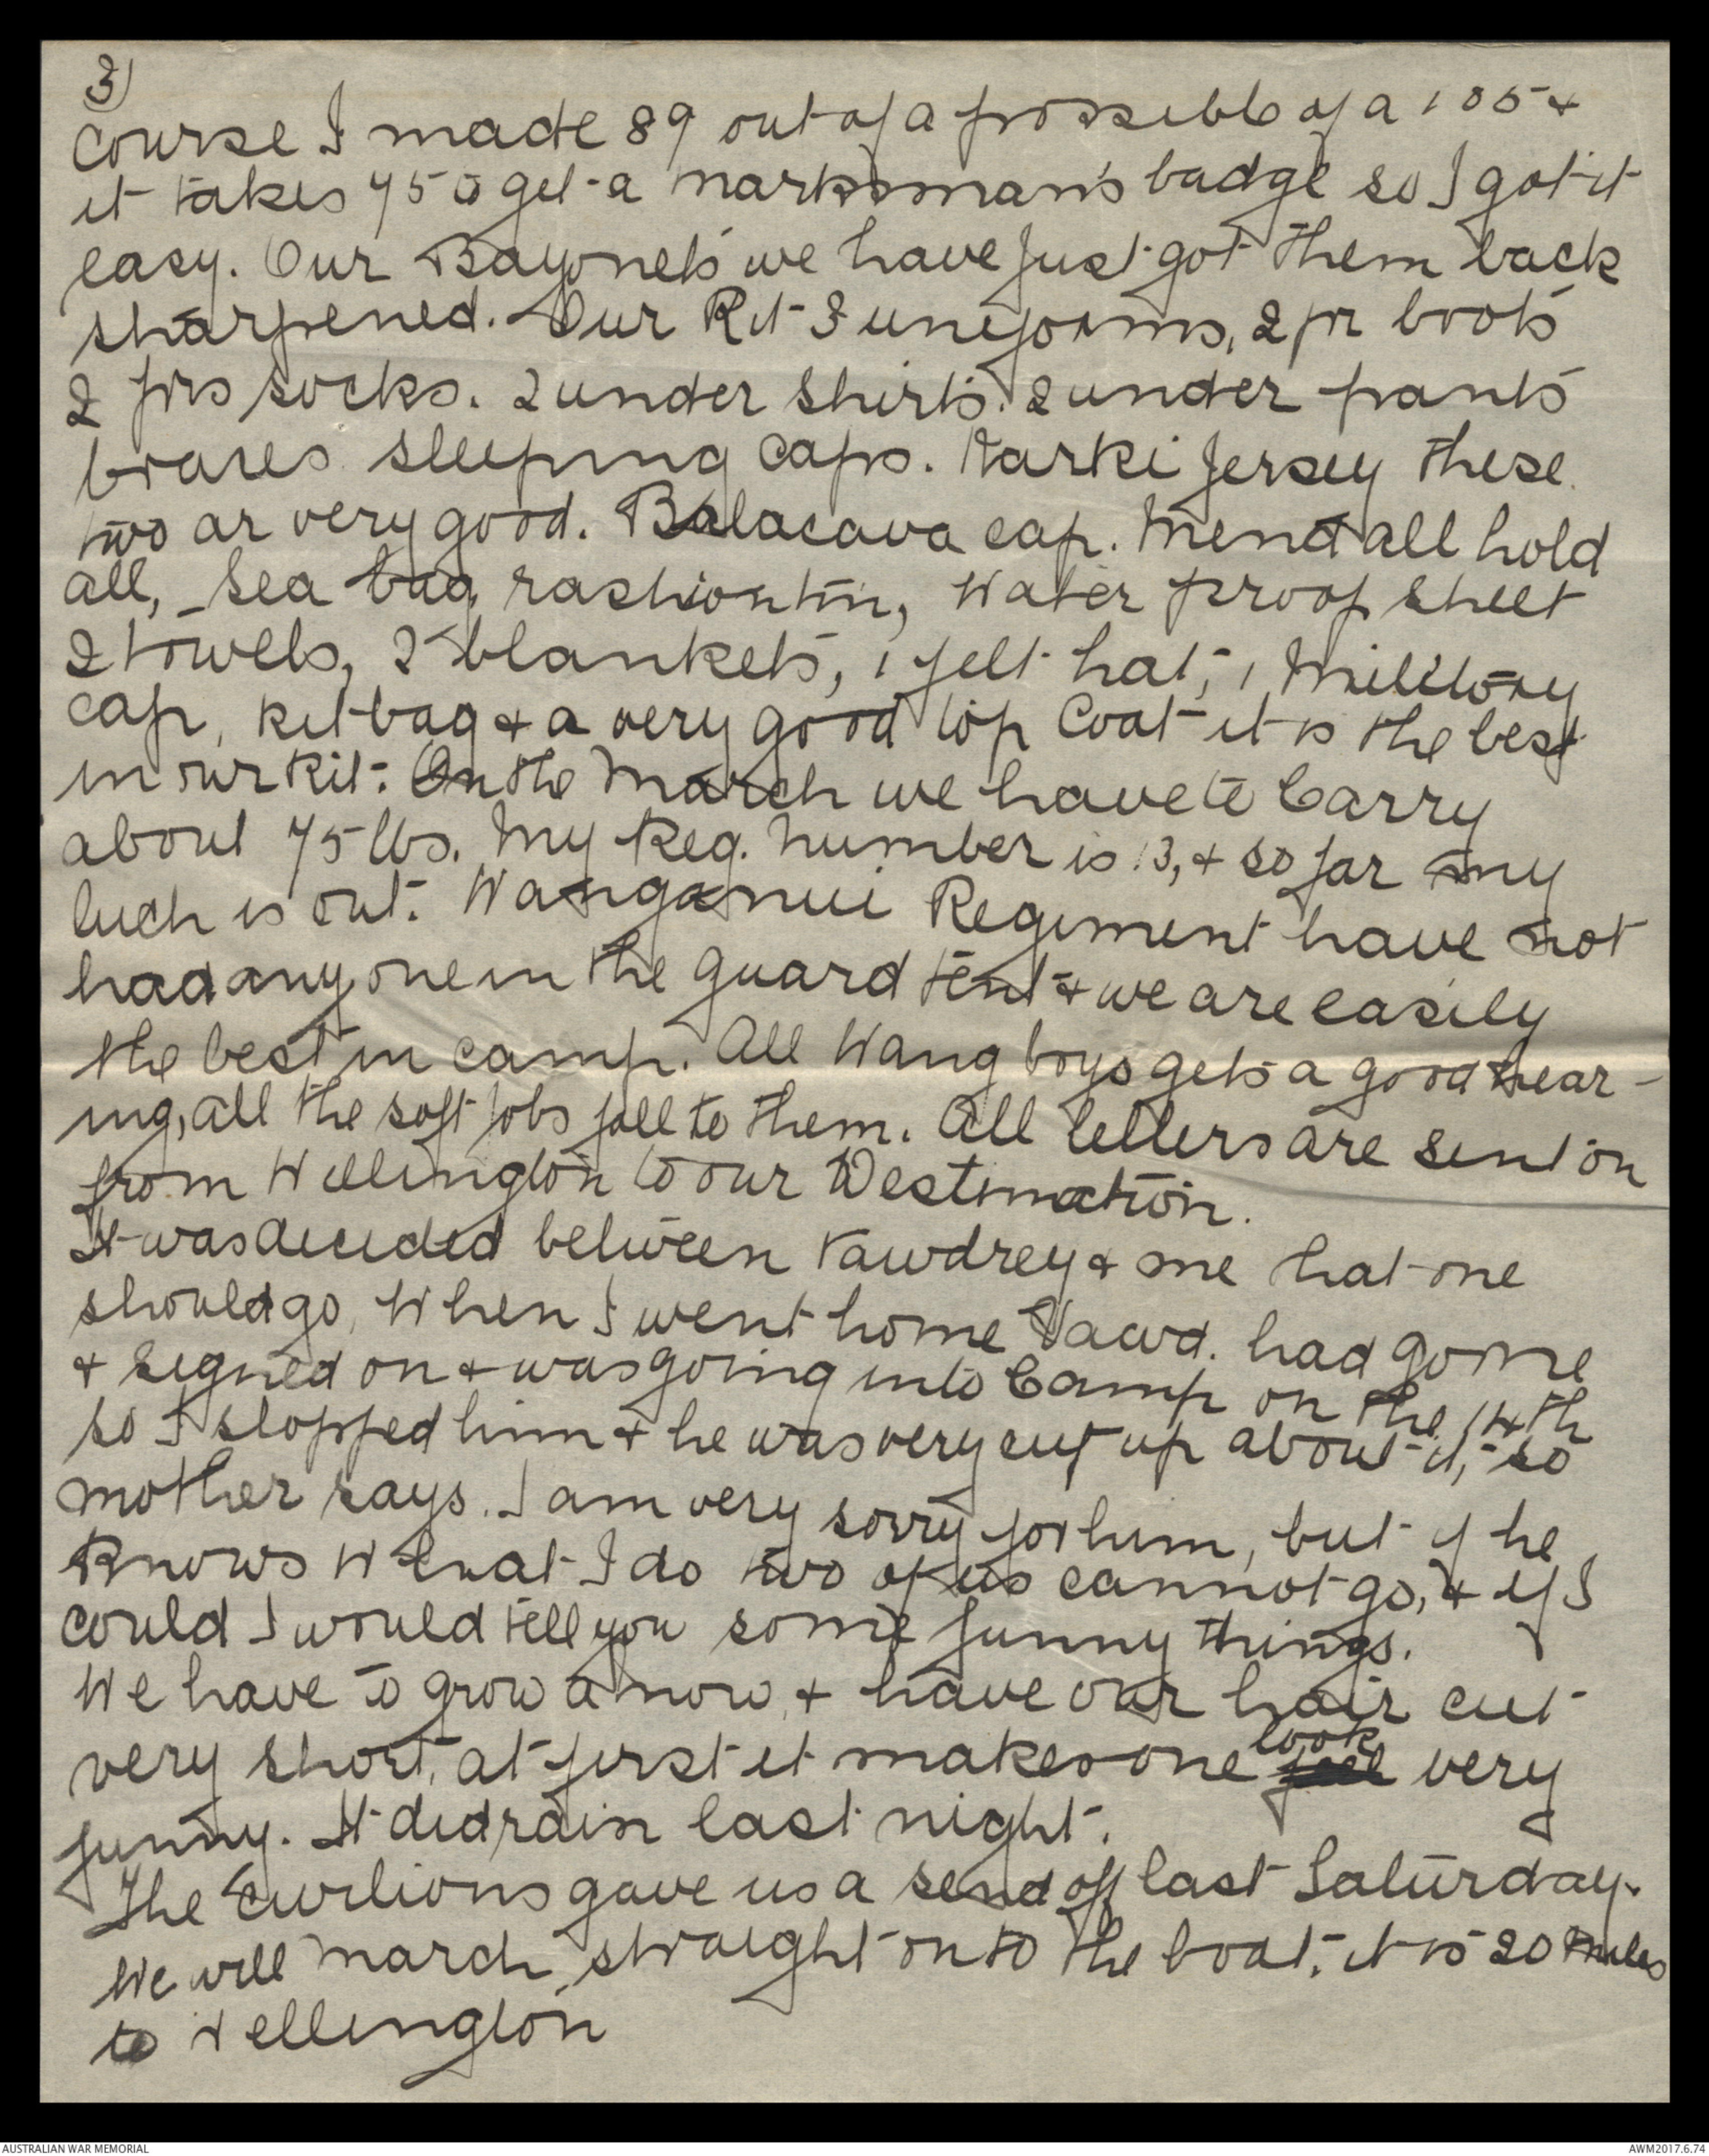 3)
course I made 89 out of a possible of a 105 &
it takes 75 to get a marksman's badge so I got it
easy. Our Bayonets we have just got them back
sharpened. Our Kit 3 uniforms, 2 pr boots
2 prs socks. 2 under shirts. 2 under pants
braces sleeping caps. Karki Jersey these
two ar very good. Balacava cap. Mend all hold
all, Sea bag, rashion tin, Water proof sheet
2 towels, 2 blankets, 1 felt hat, 1 Military
cap, kit bag & a very good top Coat it is the best
in our kit. On the March we have to Carry
about 75 lbs. My Reg. Number is 13, & so far my
luch is out. Wanganui Regiment have not
had any one in the guard tent & we are easily
the best in camp. All Wang boys gets a good hear-
ing, all the soft jobs fall to them. All letters are sent on
from Wellington to our Destination.
It was decided between Vawdrey & me that one
should go, When I went home Vawd. had gone
& signed on & was going into Camp on the 14th
so I stopped him & he was very cut up about it, so
mother says. I am very sorry for him, but if he
Knows What I do two of us cannot go, & if I
could I would tell you some funny things.
We have to grow a mow, & have our hair cut
very short, at first it makes one look very
funny. It did rain last night.
The gave us a send off last Saturday.
We will march straight on to the boat, it is 20 miles
to Wellington
AUSTRALIAN WAR MEMORIAL
AWM2017.6.74